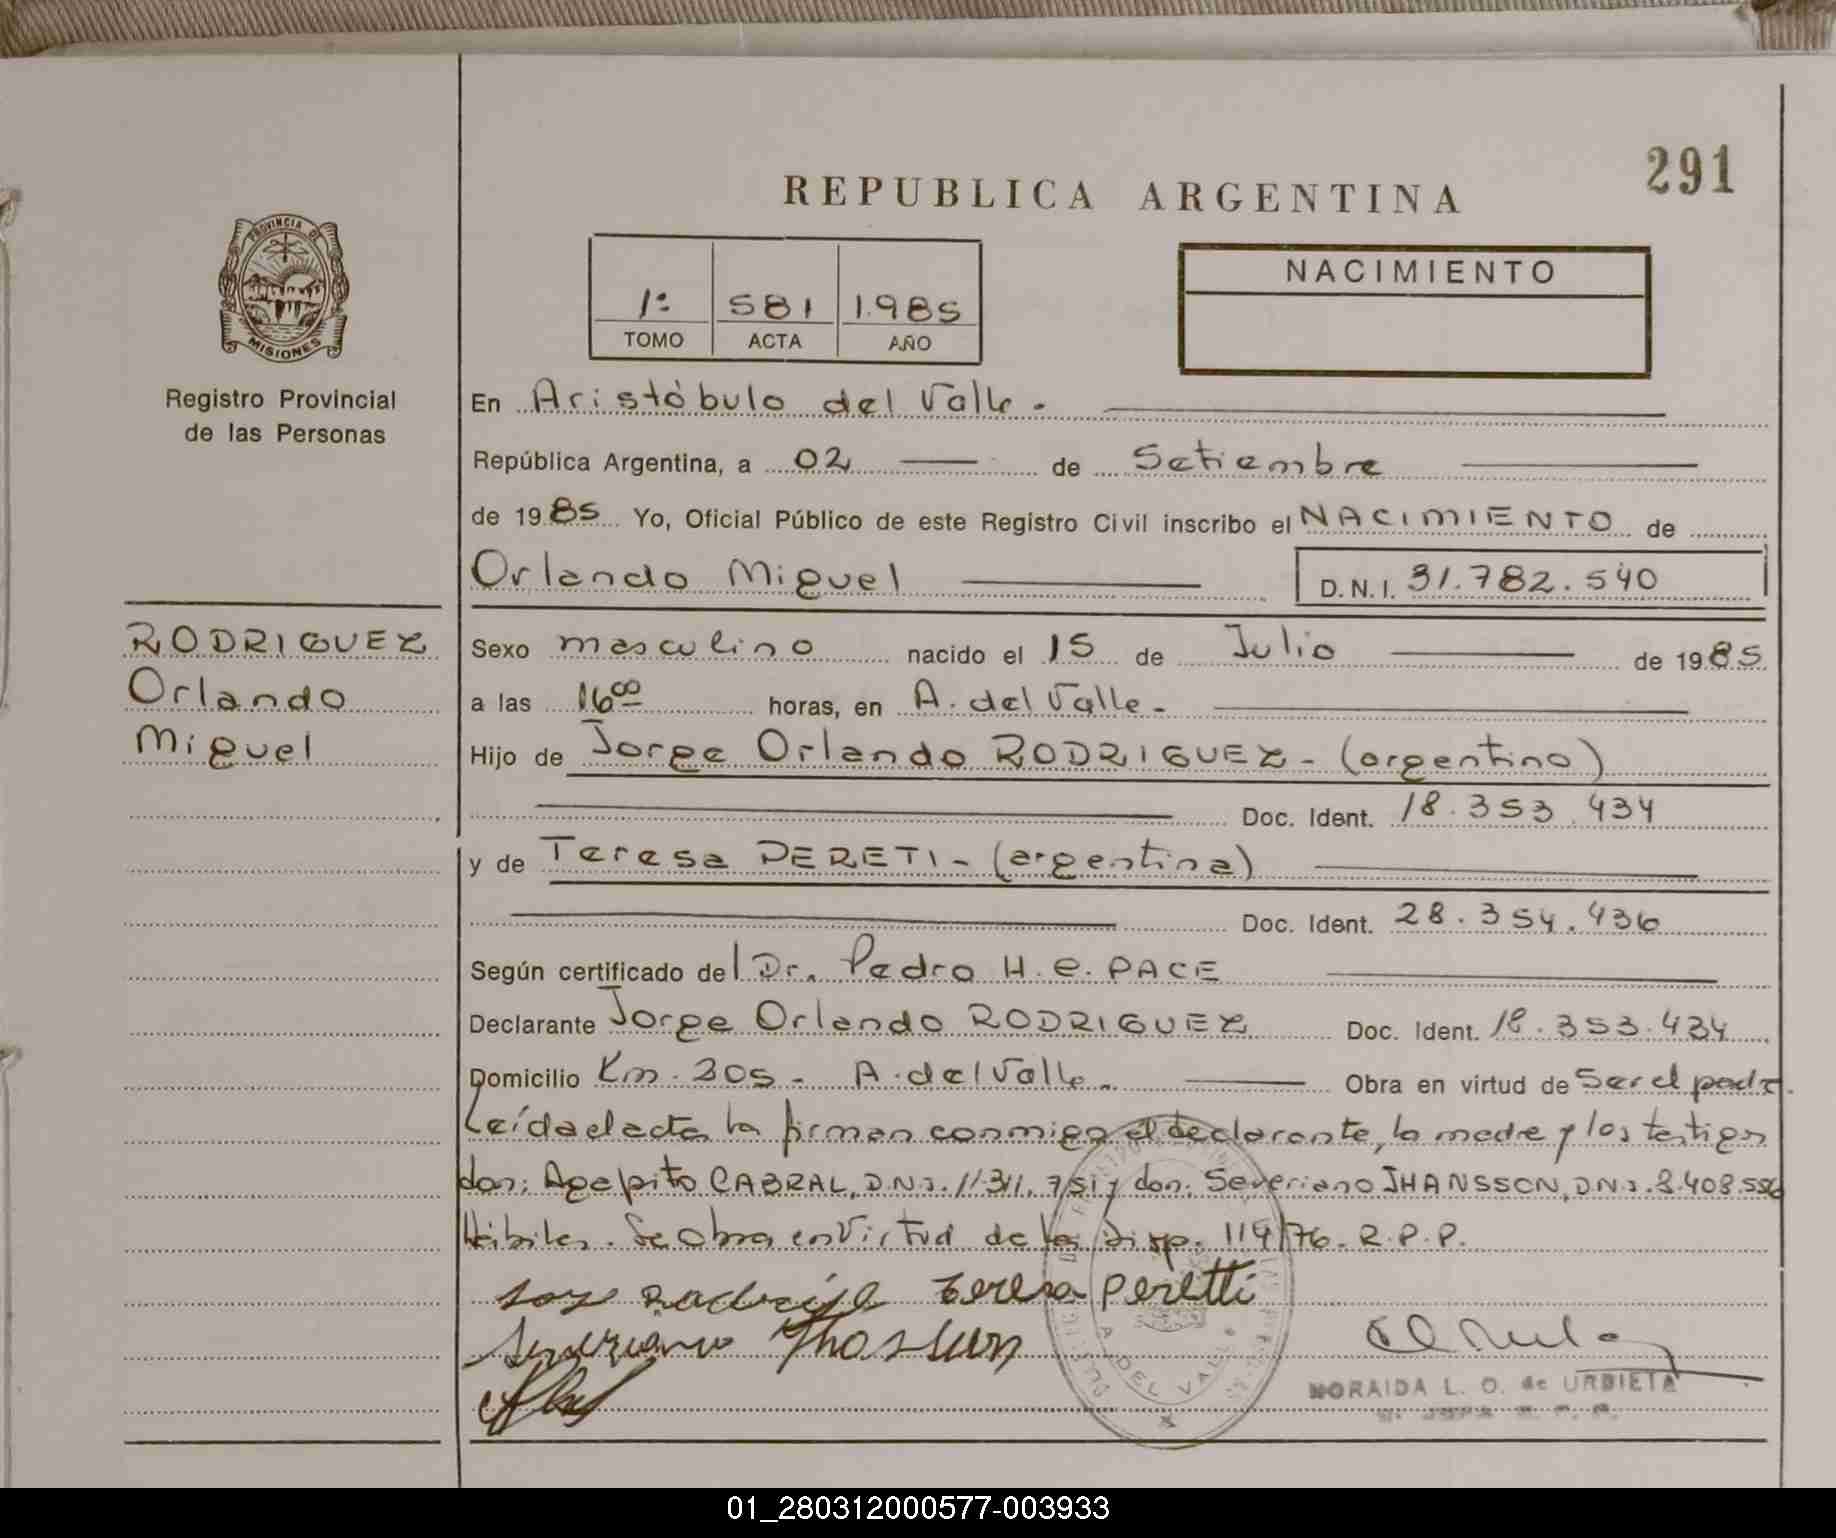 291
REPUBLICA ARGENTINA
PROVINCIA DE
MISIONES
Registro Provincial
de las Personas
1º 581 1.985
TOMO ACTA AÑO
NACIMIENTO
En Aristóbulo del Valle.
República Argentina, a 02 de Setiembre
de 1985 Yo, Oficial Público de este Registro Civil inscribo el NACIMIENTO de
Orlando Miguel D.N.I. 31.782.540
RODRIGUEZ
Orlando
Miguel
Sexo masculino nacido el 15 de Julio de 1985
a las 16 00 horas, en A. del Valle.
Hijo de Jorge Orlando RODRIGUEZ - (argentino)
Doc. Ident. 18.353.434
y de Teresa PERETI - (argentina)
Doc. Ident. 28.354.436
Según certificado del Dr. Pedro H. e. PACE
Declarante Jorge Orlando RODRIGUEZ Doc. Ident. 18.353.434
Domicilio Km. 205 - A. del Valle. Obra en virtud de ser el padre.
Leída el acta la firman conmigo el declarante, la madre y los testigos
don: Agapito CABRAL, D.N.I. 11.311.751 y don: Severiano JHANSSON, D.N.I. 8.408.556
Hábiles. Se obra en Virtud de las Disp. 114/76. R.P.P.
Teresa Peretti
A. DEL VALLE
NORAIDA L. O. de URBIETA
01_280312000577-003933